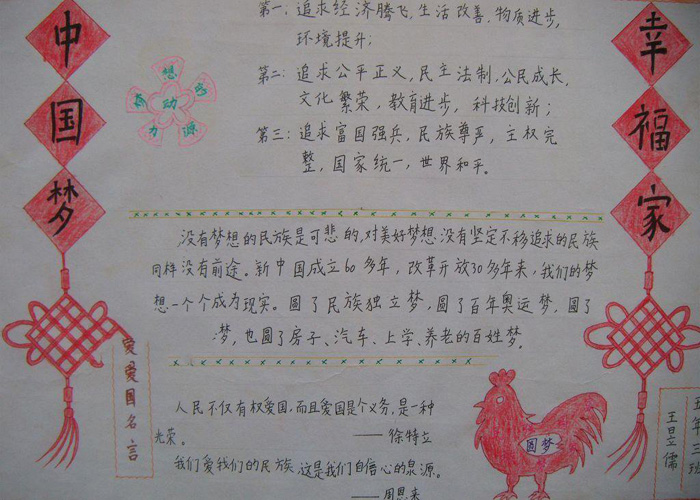 中国梦
想
动
力 源
第一：追求经济腾飞，生活改善，物质进步，
环境提升；
第二：追求公平正义，民主法制，公民成长，
文化繁荣，教育进步，科技创新；
第三：追求富国强兵，民族尊严，主权完
整，国家统一，世界和平。
幸福家
没有梦想的民族是可悲的，对美好梦想没有坚定不移追求的民族
同样没有前途。新中国成立60多年，改革开放30多年来，我们的梦
想一个个成为现实。圆了民族独立梦，圆了百年奥运梦，圆了
梦，也圆了房子、汽车、上学、养老的百姓梦。
爱爱国名言
人民不仅有权爱国，而且爱国是个义务，是一种
光荣。 ——徐特立
我们爱我们的民族，这是我们自信心的泉源。
——周恩来
圆梦
五年三班
王昱儒